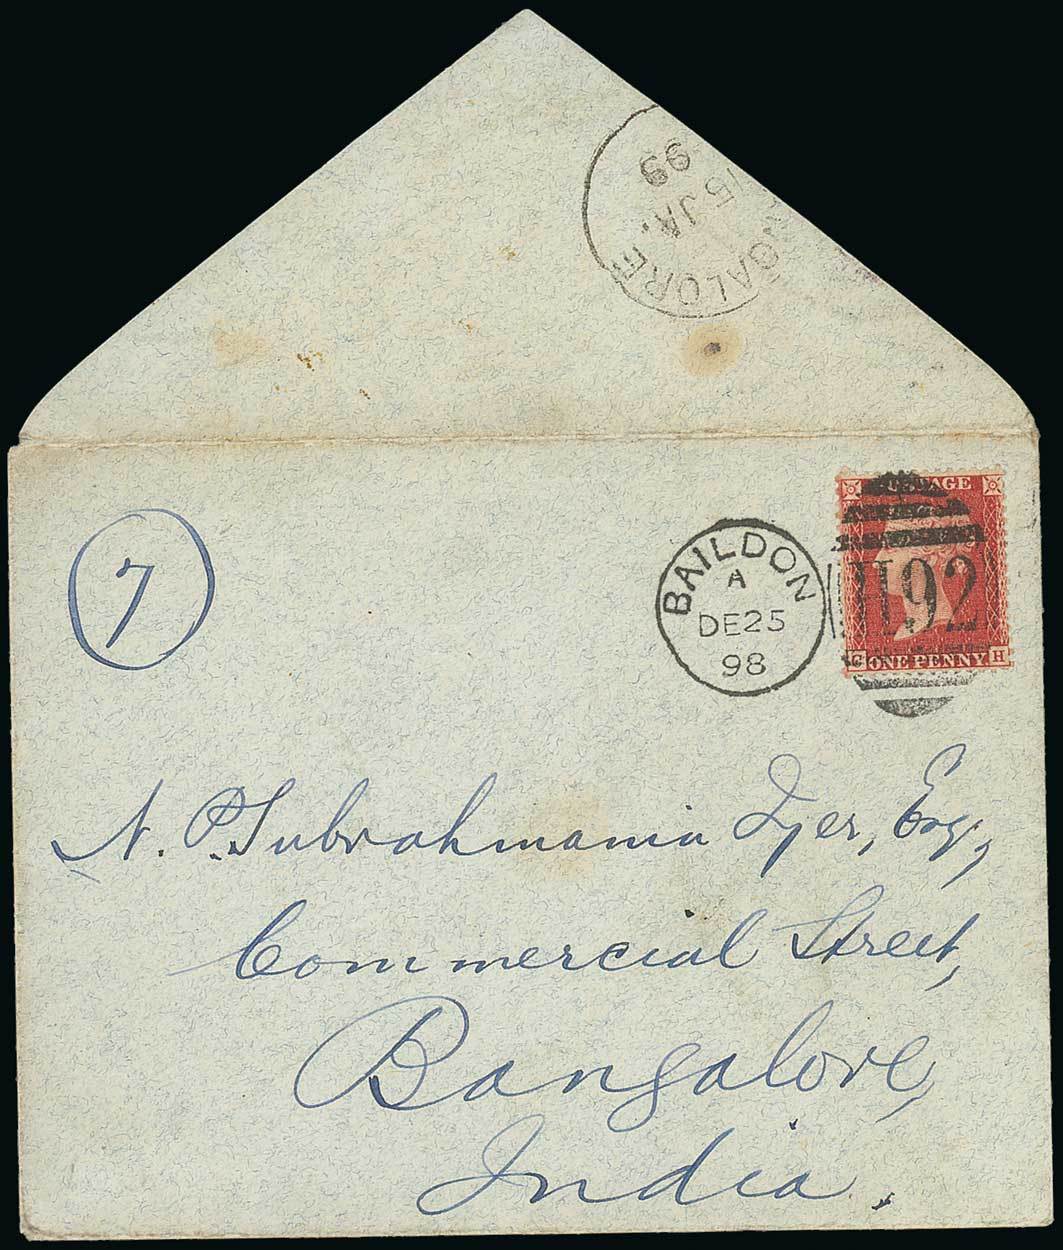 99
15 JA.
GALORE
7
BAILDON
A
DE25
98
POSTAGE
H92
C ONE PENNY H
N. P. Subrahmania Iyer, Esq.,
Commercial Street,
Bangalore,
India.